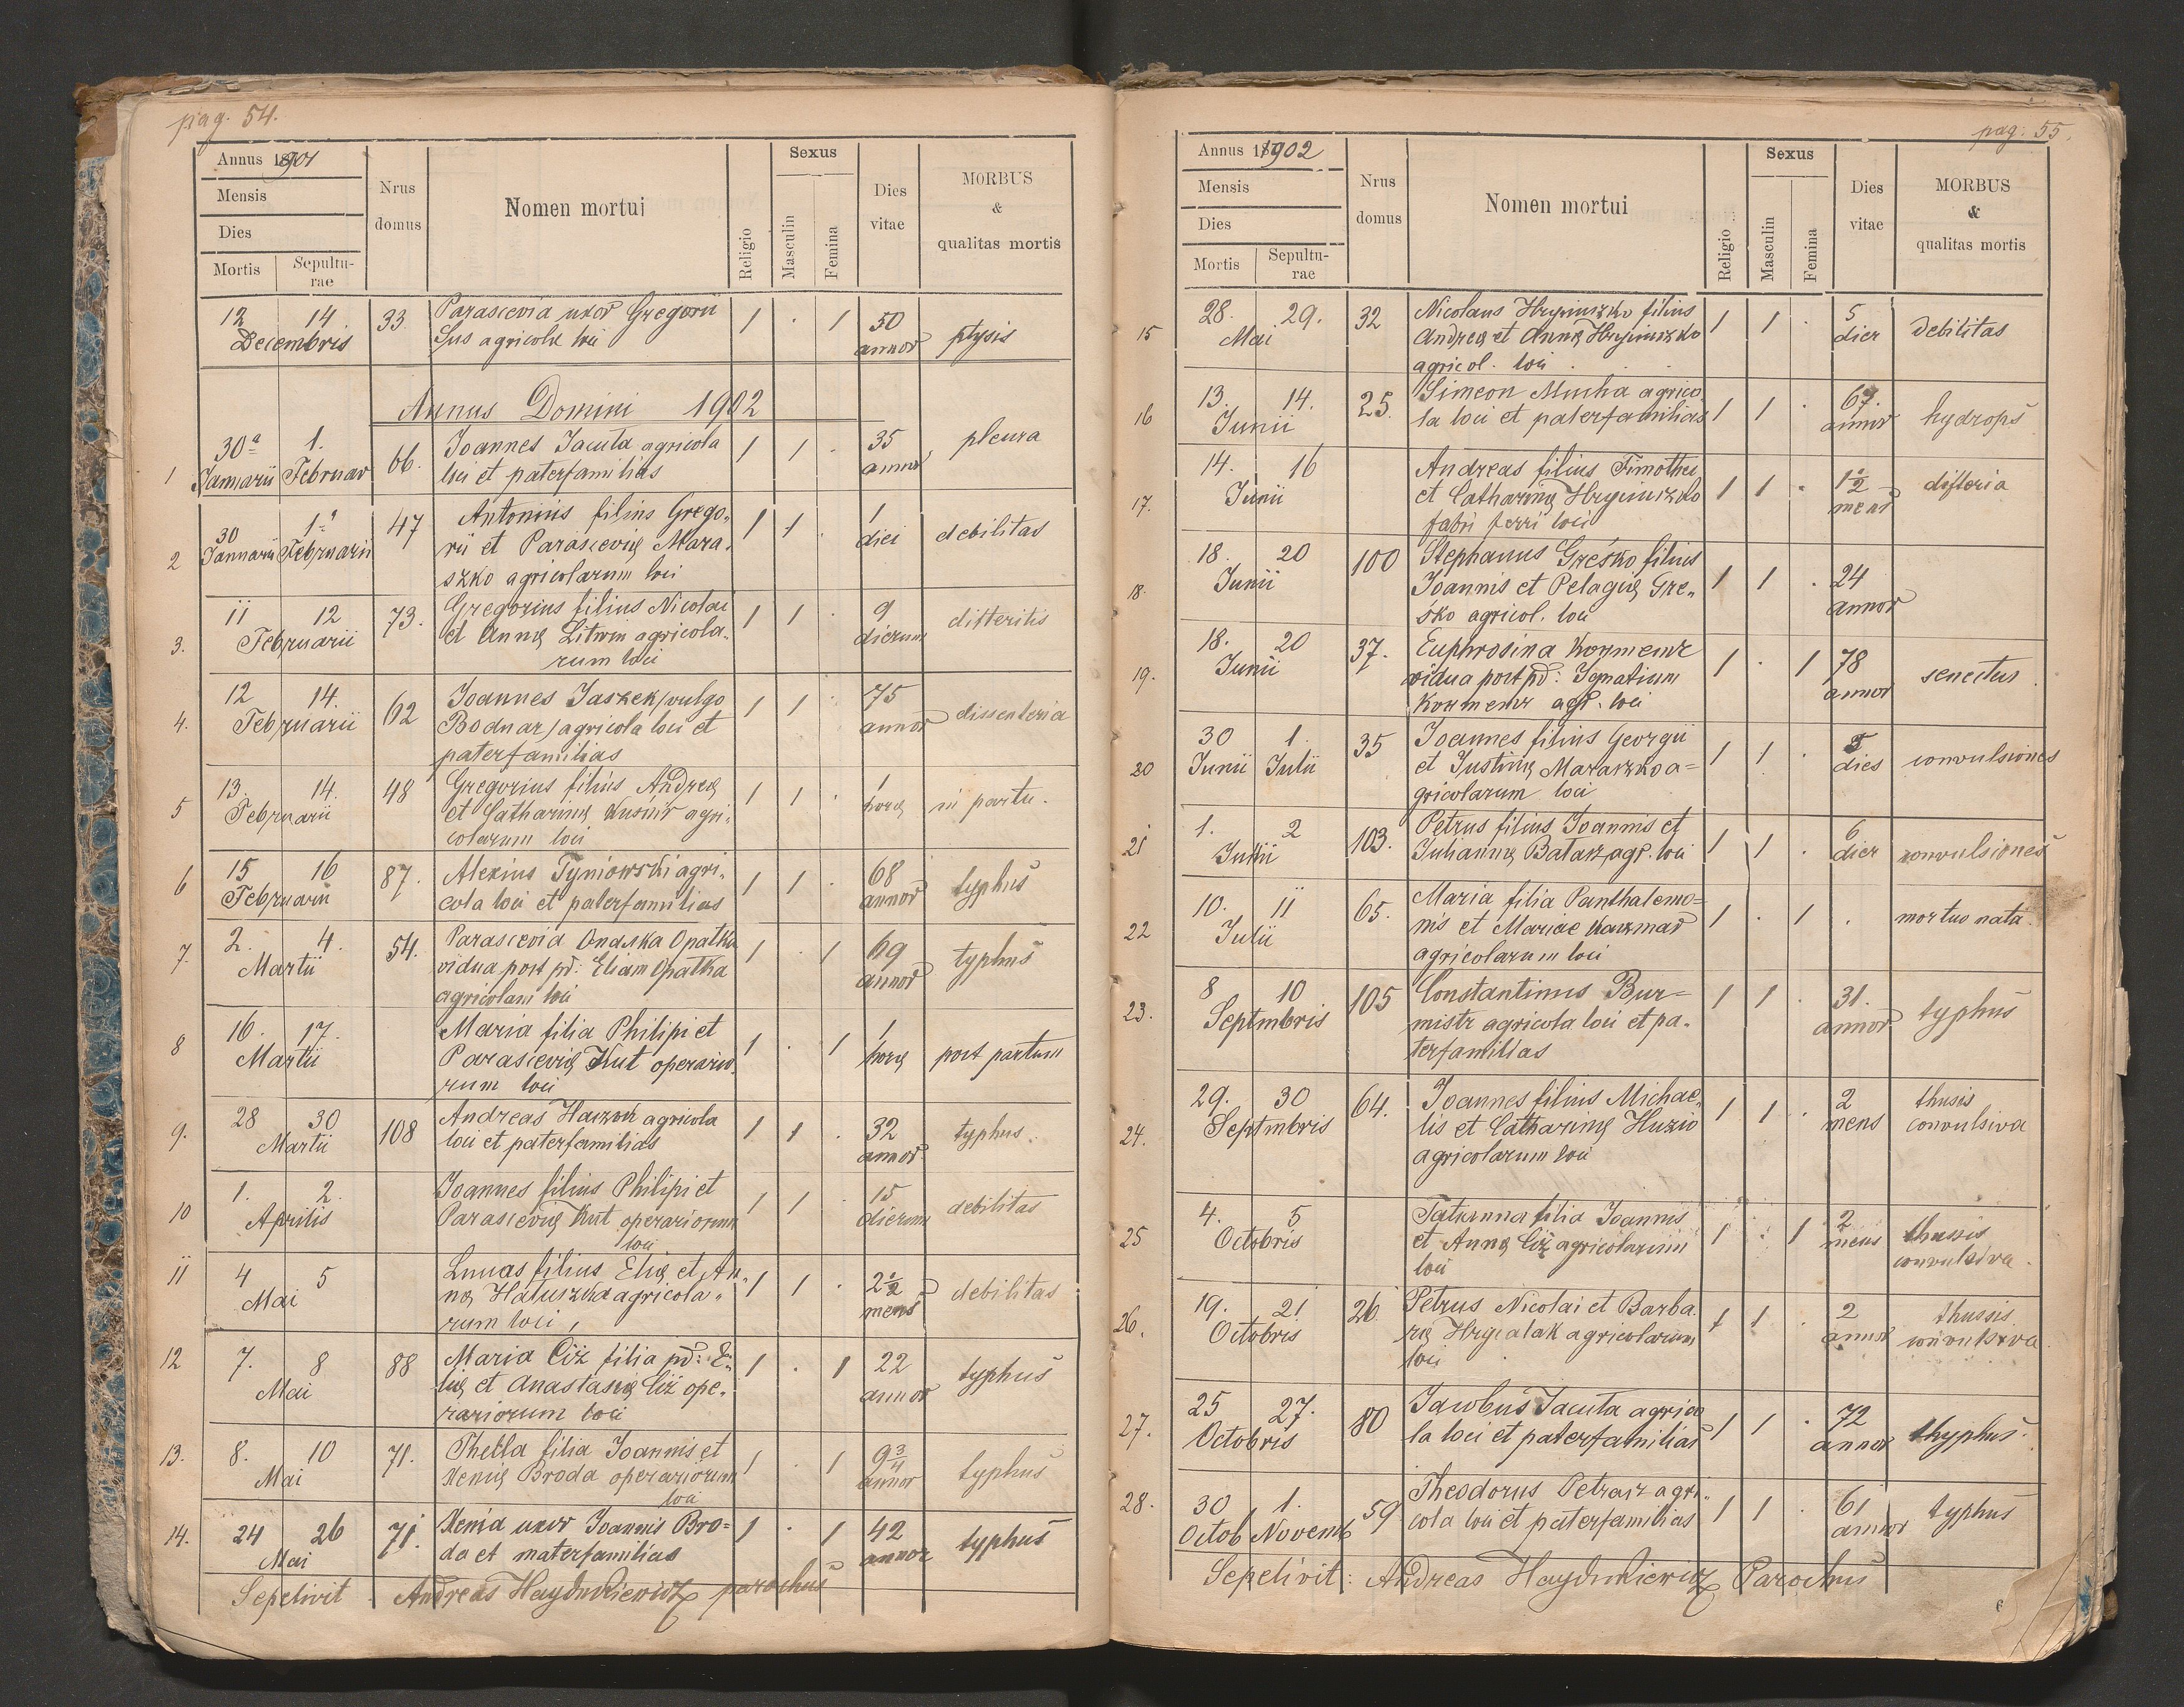 pag. 54.
Annus 1901
Mensis
Dies
Mortis
Sepultu-
rae
Nrus
domus
Nomen mortui
Religio
Sexus
Masculin
Femina
Dies
vitae
MORBUS
&
qualitas mortis
12 14 33 Parascevia uxor Gregorii 1 . 1 50 ptysis
Decembris Sus agricolæ loci annor
Annus Domini 1902
1 30ª 1. 66. Joannes Jacuta agricola 1 1 . 35 pleura
Januarii Februar loci et paterfamilias annor
2 30 1ª 47 Antonius filius Grego- 1 1 . 1 debilitas
Januarii Februarii rii et Parasceviæ Mara- diei
szko agricolarum loci
3. 11 12 73. Gregorius filius Nicolai 1 1 . 9 difteritis
Februarii et Annæ Litwin agricola- dierum
rum loci
4. 12 14. 62 Joannes Jaszek /vulgo 1 1 . 75 dissenteria
Februarii Bodnar/ agricola loci et annor
paterfamilias
5 13. 14. 48 Gregorius filius Andreæ 1 1 . 1 in partu.
Februarii et Catharinæ Kuśnir agri- horæ
colarum loci
6 15 16 87. Alexius Tyniowski agri- 1 1 . 68 typhus
Februarii cola loci et paterfamilias annor
7. 2. 4. 54. Parascevia Onaska Opatka 1 . 1 69 typhus
Martii vidua post pd: Eliam Opatka annor
agricolam loci
8 16. 17. Maria filia Philipi et 1 . 1 1 post partum
Martii Parasceviæ Kut operario- horæ
rum loci
9. 28 30 108 Andreas Haczok agricola 1 1 . 32 typhus.
Martii loci et paterfamilias annor
10 1. 2. Joannes filius Philipi et 1 1 . 15 debilitas
Aprilis Parasceviæ Kut operariorum dierum
loci
11 4 5 Lucas filius Eliæ et An- 1 1 . 2½ debilitas
Mai næ Hatuszka agricola- mens
rum loci
12 7. 8 88 Maria Ciż filia pd: E- 1 . 1 22 typhus
Mai liæ et Anastasiæ Ciż ope- annor
rariorum loci
13. 8. 10 71. Thekla filia Joannis et 1 . 1 9 3/4 typhus
Mai Xeniæ Broda operariorum annor
loci
14. 24 26 71. Xenia uxor Joannis Bro- 1 . 1 42 typhus
Mai da et materfamilias annor
Sepelivit Andreas Haydukiewicz parochus
pag: 55.
Annus 1902
Mensis
Dies
Mortis
Sepultu-
rae
Nrus
domus
Nomen mortui
Religio
Sexus
Masculin
Femina
Dies
vitae
MORBUS
&
qualitas mortis
15 28. 29. 32 Nicolaus Hryniszko filius 1 1 . 5 debilitas
Mai Andreæ et Annæ Hryniszko dier
agricol. loci
16 13. 14. 25. Simeon Mucha agrico- 1 1 . 67. hydrops
Junii la loci et paterfamilias annor
17. 14. 16 Andreas filius Timothei 1 1 . 1½ difteria
Junii et Catharinæ Hryniszko mens
fabri ferri loci
18. 18. 20 100 Stephanus Greśko filius 1 1 . 24
Junii Joannis et Pelagiæ Gre- annor
śko agricol. loci
19. 18. 20 37. Euphrosina Kormenz 1 . 1 78 senectus
Junii vidua post pd: Ignatium annor
Kormenz agr. loci
20 30 1. 35 Joannes filius Georgii 1 1 . 5 convulsiones
Junii Julii et Justinæ Maraszko a= dies
gricolarum loci
21 1. 2 103. Petrus filius Joannis et 1 1 . 6 convulsiones
Julii Julianna Batasz agr. loci dier
22 10. 11 65. Maria filia Panthalemo= 1 . 1 . mortuo nata.
Julii nis et Mariae Kaczmar
agricolarum loci
23. 8 10 105 Constantinus Bur= 1 1 . 31. typhus
Septmbris mistr agricola loci et pa- annor
terfamilias
24. 29. 30 64. Joannes filius Michae- 1 1 . 2 thusis
Septmbris lis et Catharinæ Huzio mens convulsiva
agricolarum loci
25 4. 5 Tatianna filia Joannis 1 . 1 2 thussis
Octobris et Annæ Ciż agricolarum mens convulsiva.
loci
26. 19. 21 26 Petrus Nicolai et Barba- 1 1 . 2 thussis
Octobris ræ Hrycalak agricolarum annor convulsiva
loci
27. 25 27. 80 Jacobus Jacuta agrico 1 1 . 72 thyphus.
Octobris la loci et paterfamilias annor
28. 30 1. 59 Theodorus Petrasz agri- 1 1 . 61 typhus
Octob Novemb cola loci et paterfamilias annor
Sepelivit: Andreas Haydukiewicz Parochus